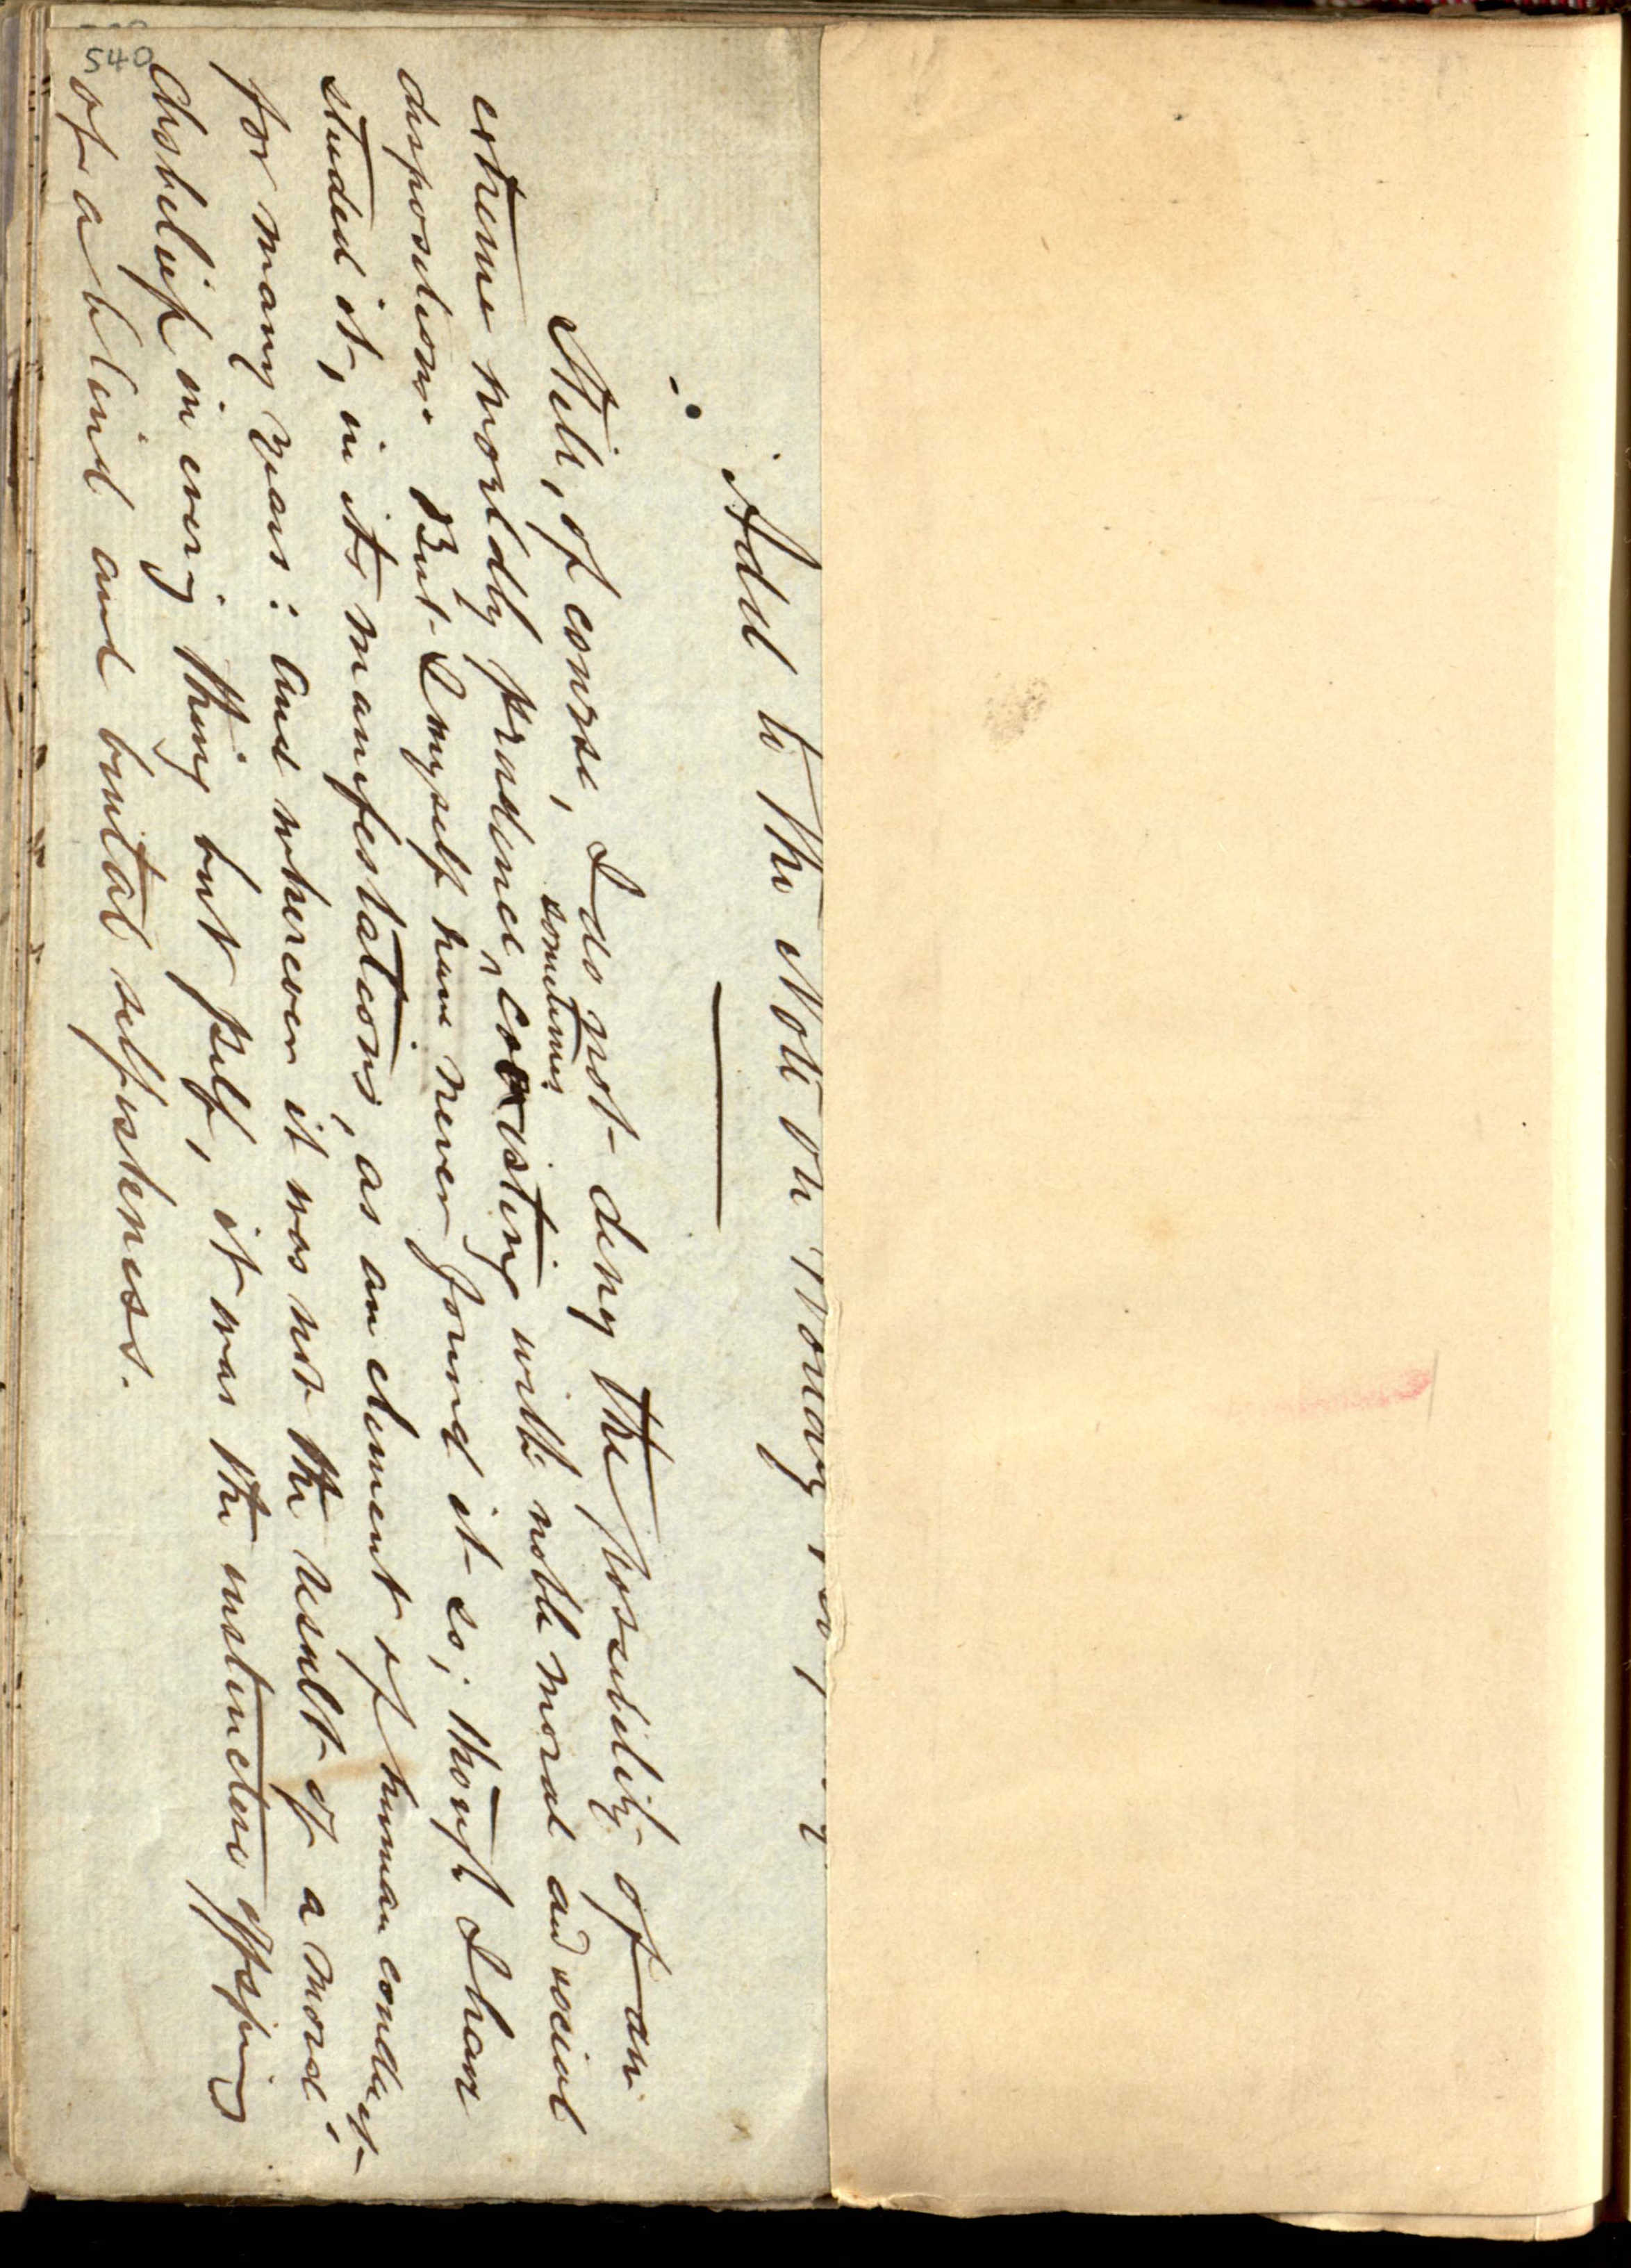 540
Add to the Note on Money
Still, of course, I do not deny the possibility of an
sometimes
extreme worldly prudence coexisting with noble moral and social
disposition. But I myself have never found it so; though I have
studied it, in its manifestations, as an element of human conduct
for many years: and wherever it was not the result of a moral
disbelief in every thing but pelf, it was the instinctive offspring
of a blind and brutal selfishness.